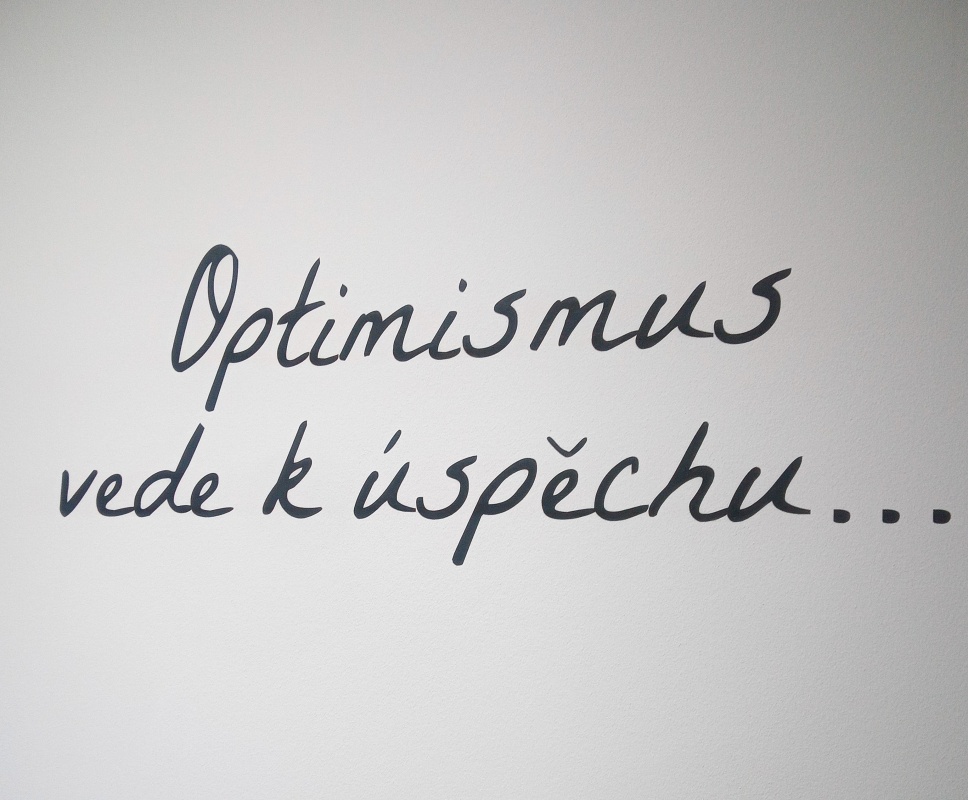 Optimismus
vede k úspěchu...